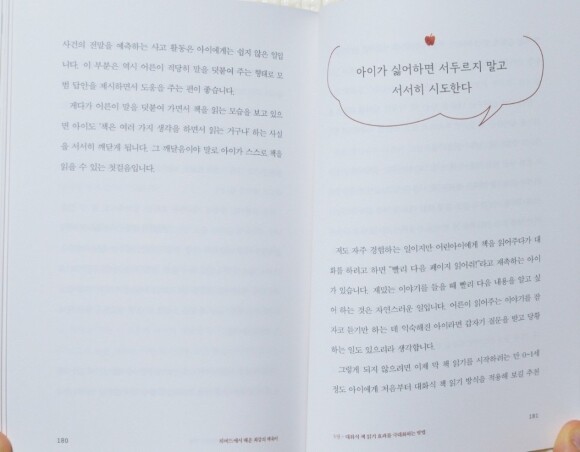 사건의 전말을 예측하는 사고 활동은 아이에게는 쉽지 않은 일입
니다. 이 부분은 역시 어른이 적당히 말을 덧붙여 주는 형태로 모
범 답안을 제시하면서 도움을 주는 편이 좋습니다.
게다가 어른이 말을 덧붙여 가면서 책을 읽는 모습을 보고 있으
면 아이도 '책은 여러 가지 생각을 하면서 읽는 거구나' 하는 사실
을 서서히 깨닫게 됩니다. 그 깨달음이야 말로 아이가 스스로 책을
읽을 수 있는 첫걸음입니다.
180
아이가 싫어하면 서두르지 말고
서서히 시도한다
저도 자주 경험하는 일이지만 어린아이에게 책을 읽어주다가 대
화를 하려고 하면 "빨리 다음 페이지 읽어줘!"라고 재촉하는 아이
가 있습니다. 재밌는 이야기를 들을 때 빨리 다음 내용을 알고 싶
어 하는 것은 자연스러운 일입니다. 어른이 읽어주는 이야기를 잠
자코 듣기만 하는 데 익숙해진 아이라면 갑자기 질문을 받고 당황
하는 일도 있으리라 생각합니다.
그렇게 되지 않으려면 이제 막 책 읽기를 시작하려는 만 0~1세
정도 아이에게 처음부터 대화식 책 읽기 방식을 적용해 보길 추천
대화식 책 읽기 효과를 극대화하는 방법
181